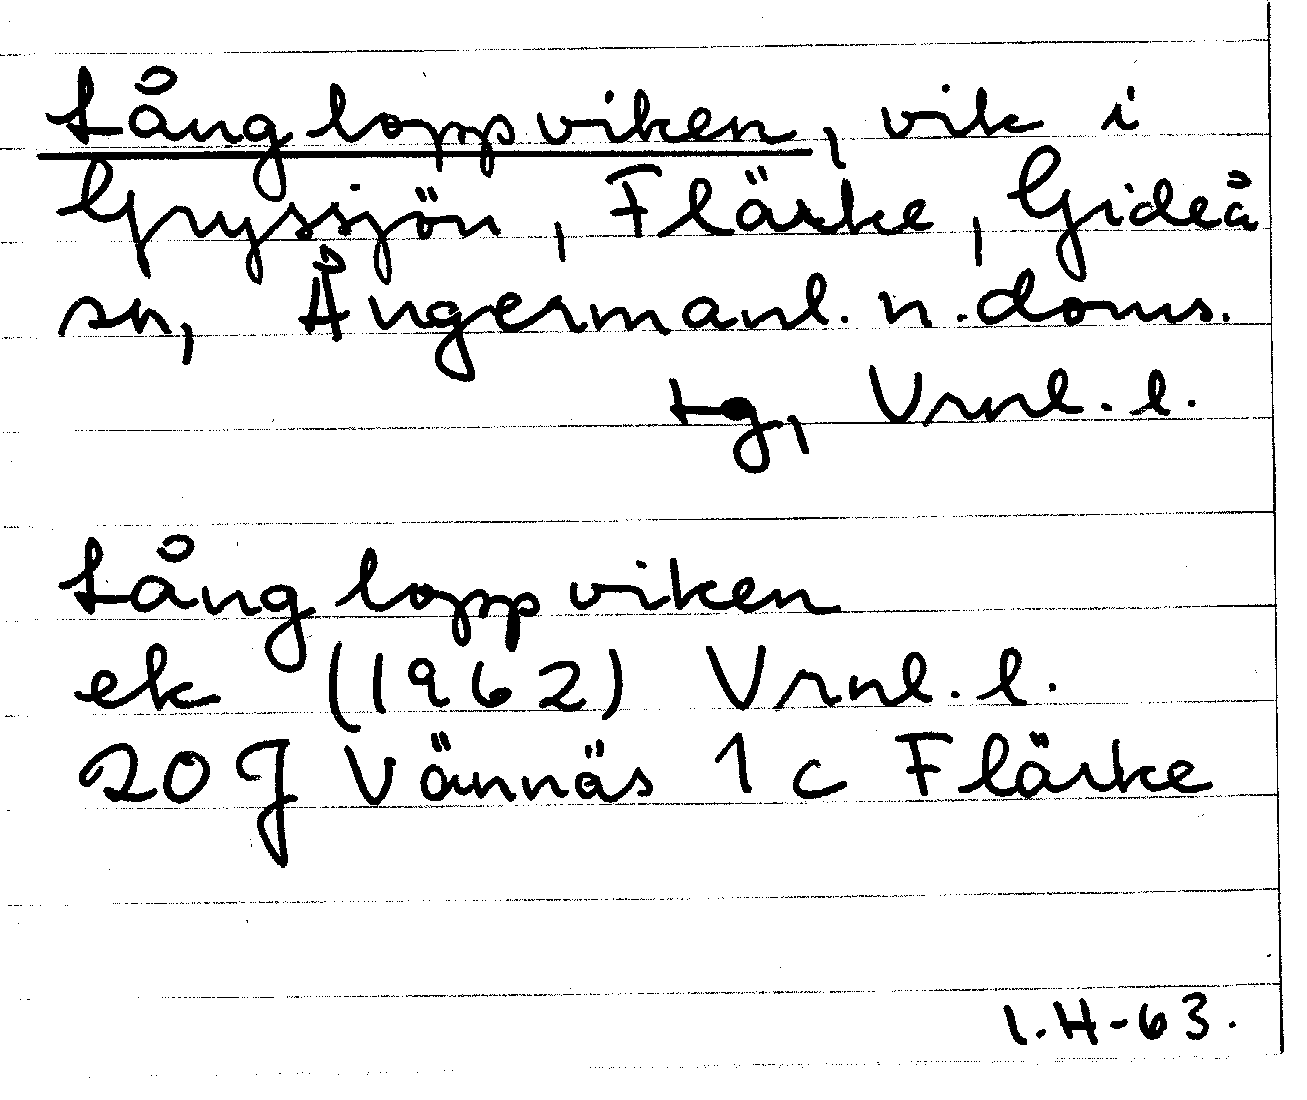 Långloppviken, vik i
Gryssjön, Flärke, Gideå
sn, Ångermanl. n. doms.
tg, Vrnl. l.
Långloppviken
ek (1962) Vrnl. l.
20 J Vännäs 1 c Flärke
I.H-63.